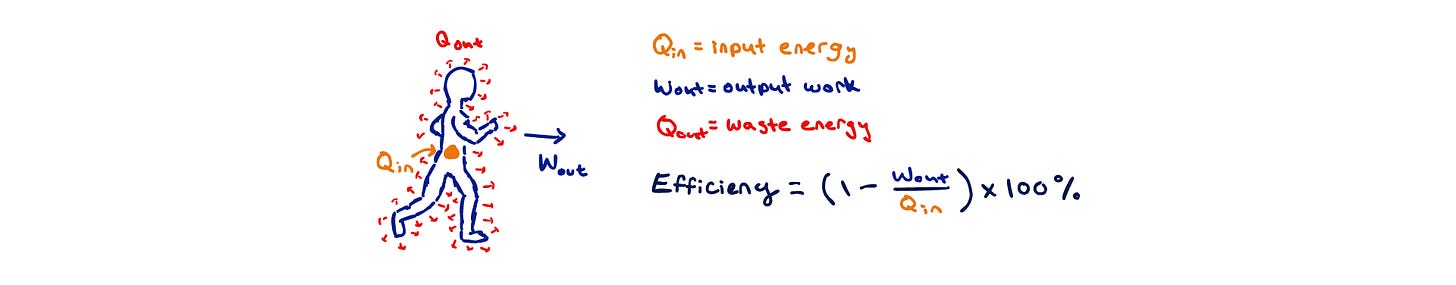 Qout
Qin
Wout
Qin = input energy
Wout = output work
Qout = waste energy
Efficieny = (1 - Wout/Qin) x 100%